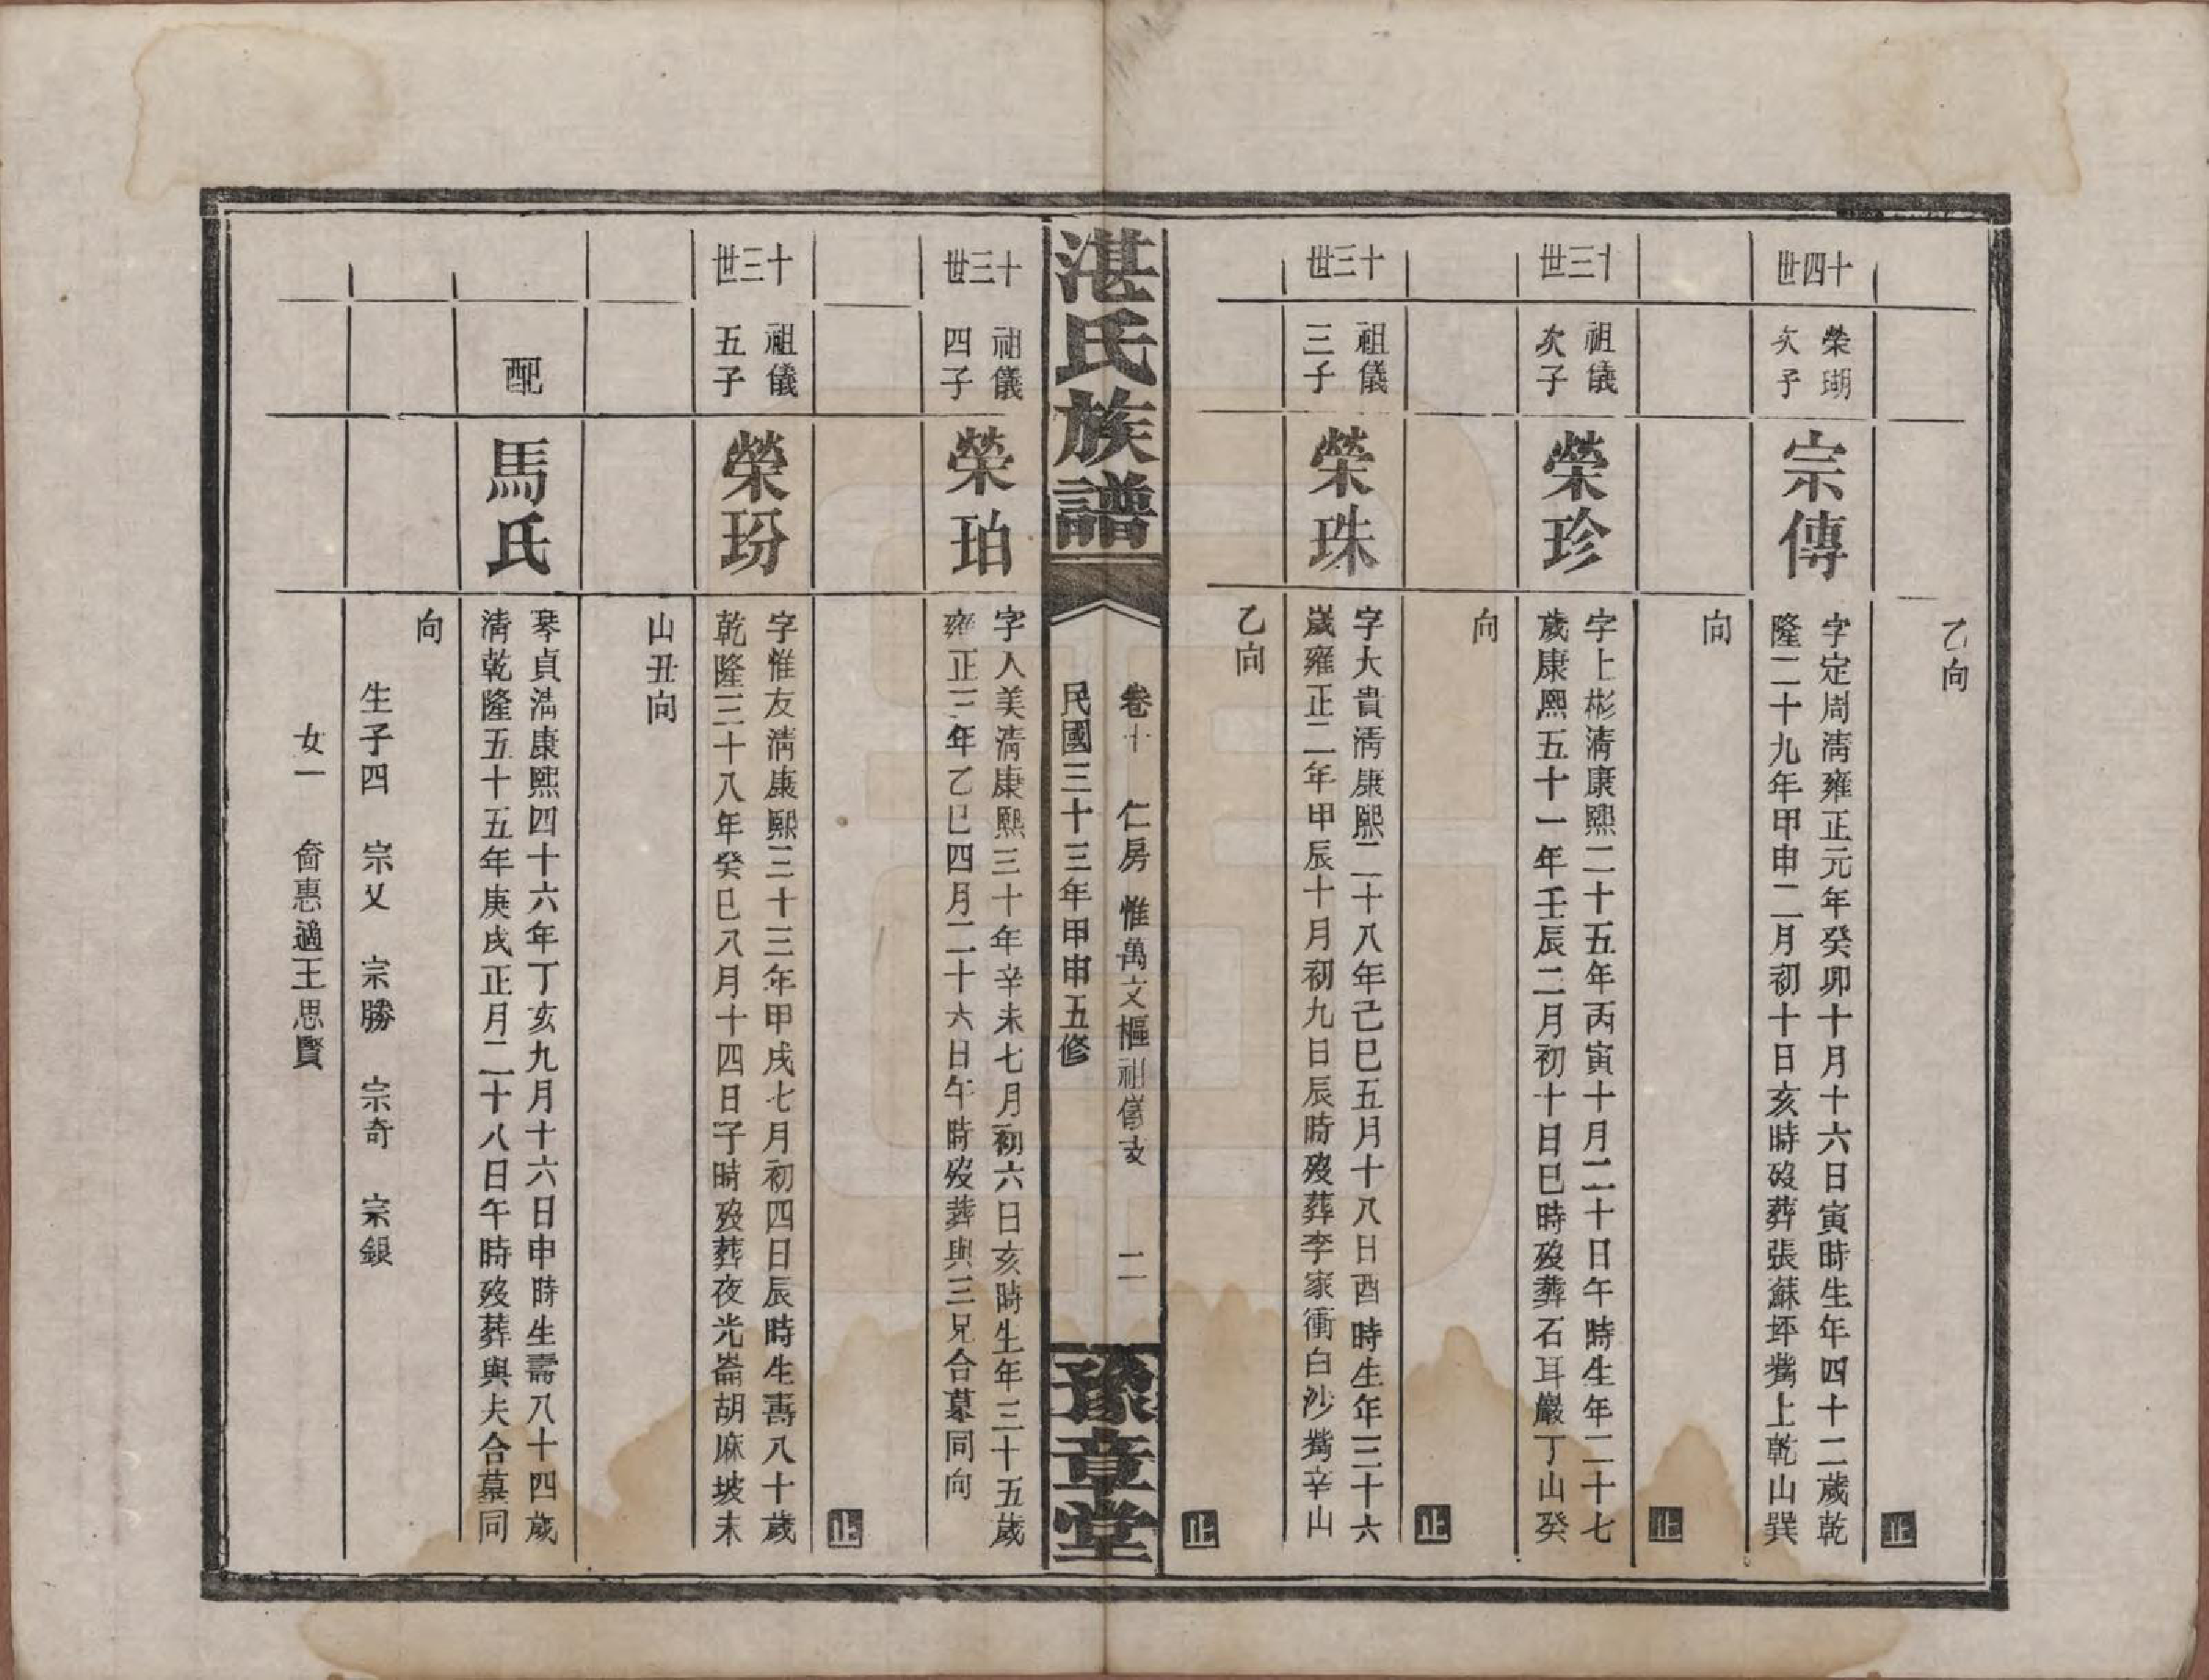 乙向
止
十四世
榮瑚
次子
宗傳
字定周清雍正元年癸卯十月十六日寅時生年四十二歲乾
隆二十九年甲申二月初十日亥時歿葬張蘇坪嘴上乾山巽
向
止
十三世
祖儀
次子
榮珍
字上彬清康熙二十五年丙寅十月二十日午時生年二十七
歲康熙五十一年壬辰二月初十日巳時歿葬石耳巖丁山癸
向
止
十三世
祖儀
三子
榮珠
字大貴清康熙二十八年己巳五月十八日酉時生年三十六
歲雍正二年甲辰十月初九日辰時歿葬李家衝白沙嘴辛山
乙向
止
湛氏族譜
卷十 仁房 惟萬文樞祖儀支 二
民國三十三年甲申五修
豫章堂
十三世
祖儀
四子
榮珀
字人美清康熙三十年辛未七月初六日亥時生年三十五歲
雍正三年乙巳四月二十六日午時歿葬與三兄合墓同向
止
十三世
祖儀
五子
榮玢
字惟友清康熙三十三年甲戌七月初四日辰時生壽八十歲
乾隆三十八年癸巳八月十四日子時歿葬夜光崙胡麻坡未
山丑向
配
馬氏
琴貞清康熙四十六年丁亥九月十六日申時生壽八十四歲
清乾隆五十五年庚戌正月二十八日午時歿葬與夫合墓同
向
生子四 宗乂 宗勝 宗奇 宗銀
女一 惠適王思賢